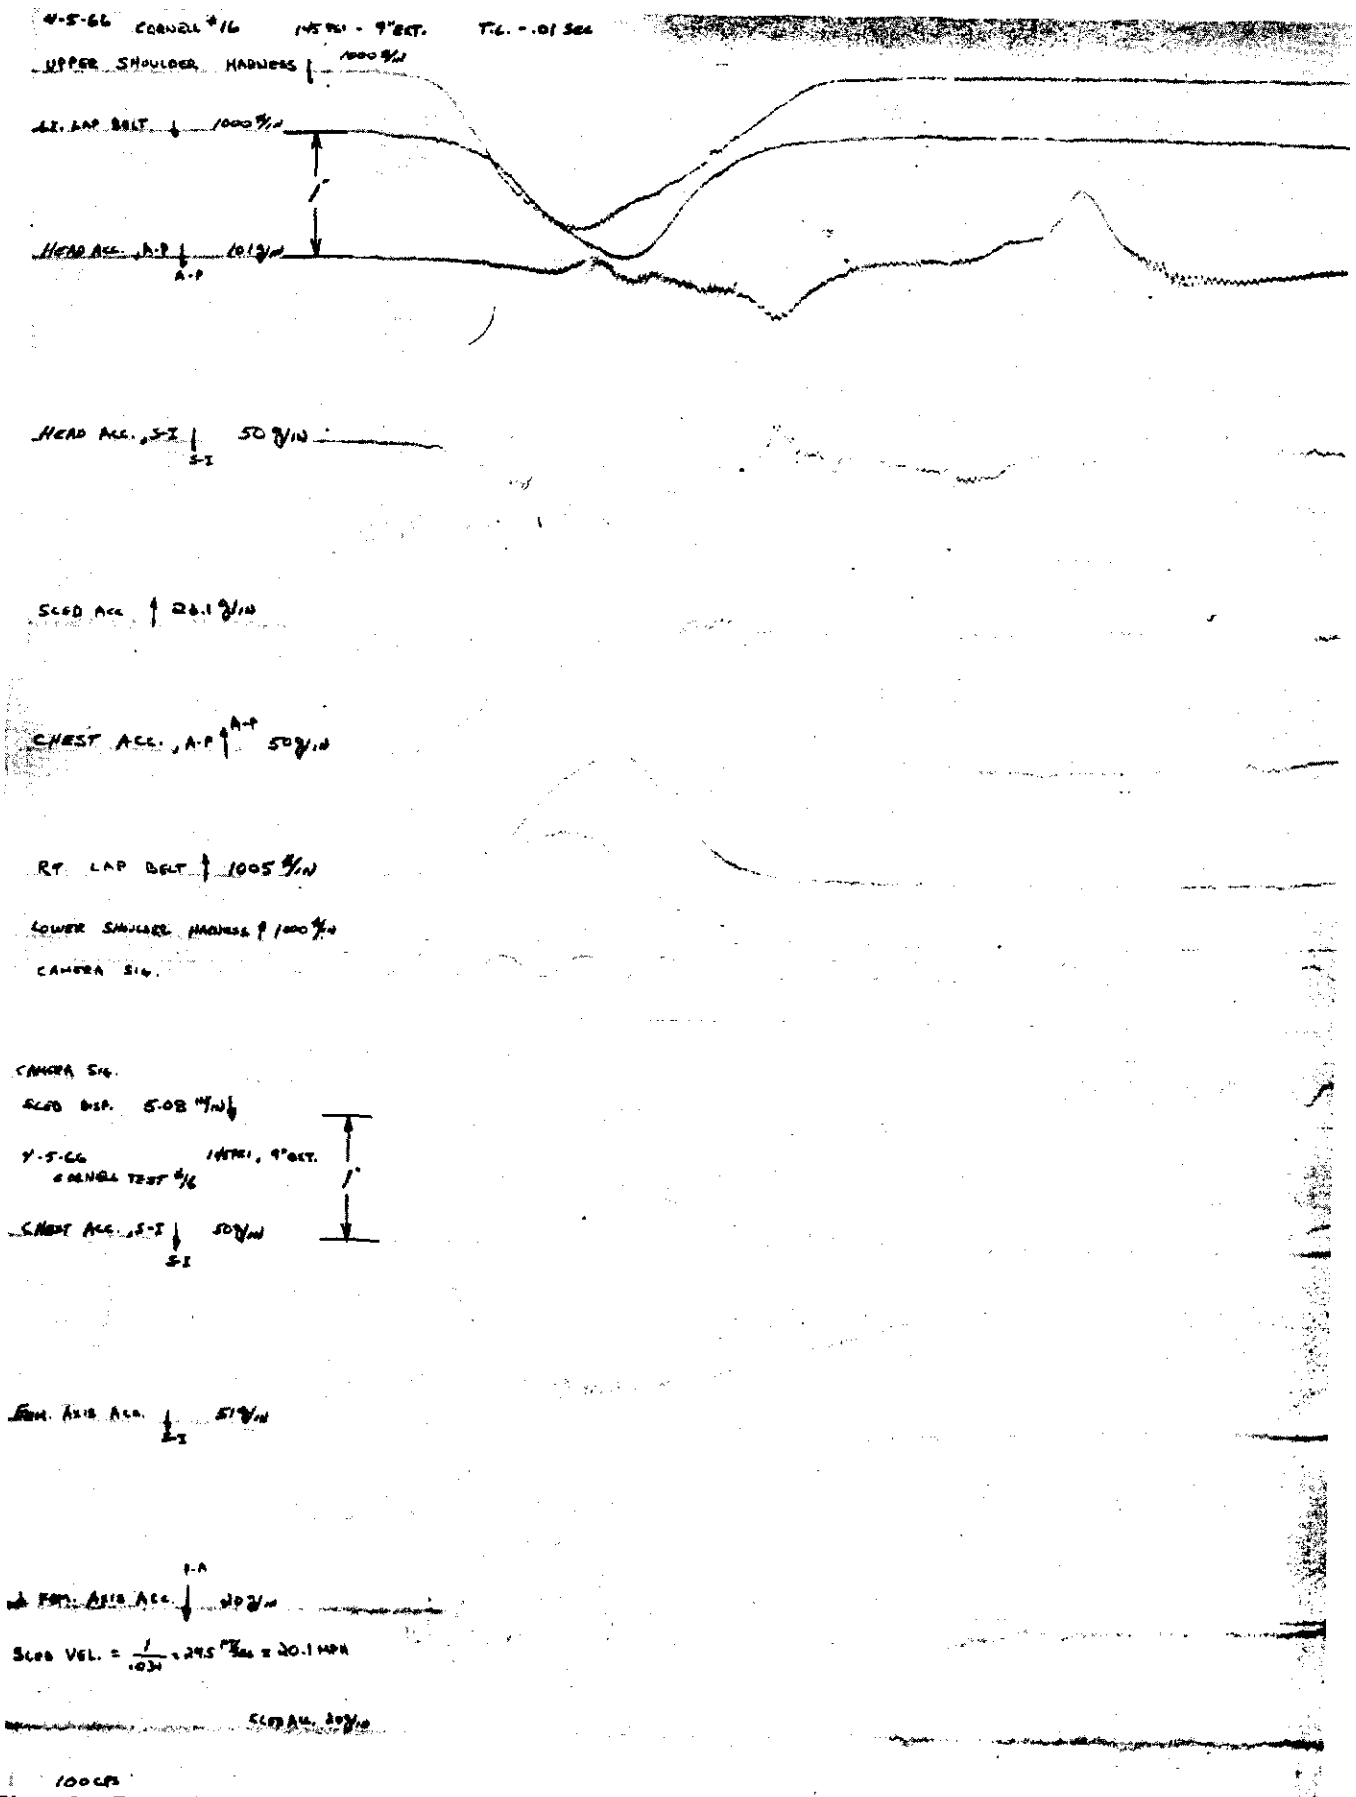 4-5-66 CORNELL #16 145 PSI - 9" EXT. T.C. - .01 SEC
UPPER SHOULDER HARNESS 1000 #/IN
LT. LAP BELT ↓ 1000 #/IN
1"
HEAD ACC., A-P ↓ 101 g/IN
A-P
HEAD ACC., S-I ↓ 50 g/IN
S-I
SLED ACC ↑ g/IN
CHEST ACC., A-P ↑ A-P 50 g/IN
RT. LAP BELT ↑ 1005 #/IN
LOWER SHOULDER HARNESS ↑ 1000 #/IN
CAMERA SIG.
CAMERA SIG.
SLED DISP. 5.08 IN/IN ↓
4-5-66 145 PSI, 9" EXT.
CORNELL TEST #16
1"
CHEST ACC., S-I ↓ 50 g/IN
S-I
FEM. AXIS ACC. ↓ 51 g/IN
S-I
P-A
FEM. AXIS ACC. ↓ 20 g/IN
SLED VEL. = 1/.034 = 29.5 FT/SEC = 20.1 MPH
SLED ACC. 20 g/IN
100 CPS